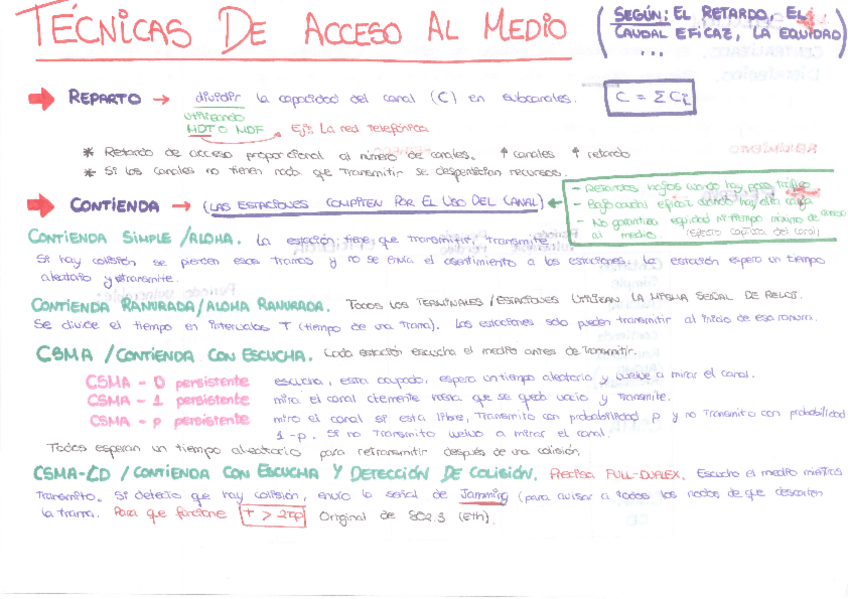 TÉCNICAS DE ACCESO AL MEDIO
(SEGÚN: EL RETARDO, EL
CAUDAL EFICAZ, LA EQUIDAD)
...
→ REPARTO → dividir la capacidad del canal (C) en subcanales. C = ΣCi
utilizando
MDT O MDF Ej: La red telefónica
* Retardo de acceso proporcional al número de canales. ↑ canales ↑ retardo
* Si los canales no tienen nada que transmitir se desperdician recursos.
→ CONTIENDA → (LAS ESTACIONES COMPITEN POR EL USO DEL CANAL) ←
- Retardos bajos cuando hay poco tráfico
- Bajo caudal eficaz cuando hay alta carga
- No garantiza equidad ni tiempo máximo de acceso
al medio. (efecto captura del canal)
CONTIENDA SIMPLE /ALOHA. La estación tiene que transmitir, transmite.
Si hay colisión se pierden esas tramas y no se envía el asentimiento a las estaciones. La estación espera un tiempo
aleatorio y retransmite.
CONTIENDA RANURADA/ALOHA RANURADA. TODOS LOS TERMINALES/ESTACIONES UTILIZAN LA MISMA SEÑAL DE RELOJ.
Se divide el tiempo en intervalos T (tiempo de una trama). Las estaciones solo pueden transmitir al inicio de esa ranura.
CSMA /CONTIENDA CON ESCUCHA. Cada estación escucha el medio antes de transmitir.
CSMA - 0 persistente escucha, esta ocupado, espera un tiempo aleatorio y vuelve a mirar el canal.
CSMA - 1 persistente mira el canal hasta que se queda vacío y transmite.
CSMA - p persistente mira el canal si esta libre, transmito con probabilidad p y no transmito con probabilidad
1-p. Si no transmito vuelvo a mirar el canal.
Todos esperan un tiempo aleatorio para retransmitir después de una colisión.
CSMA-CD / CONTIENDA CON ESCUCHA Y DETECCIÓN DE COLISIÓN. Precisa FULL-DUPLEX. Escucho el medio mientras
transmito. Si detecto que hay colisión, envío la señal de Jamming (para avisar a todos los nodos de que descarten
la trama. Para que funcione T > 2tp Original de 802.3 (Eth).